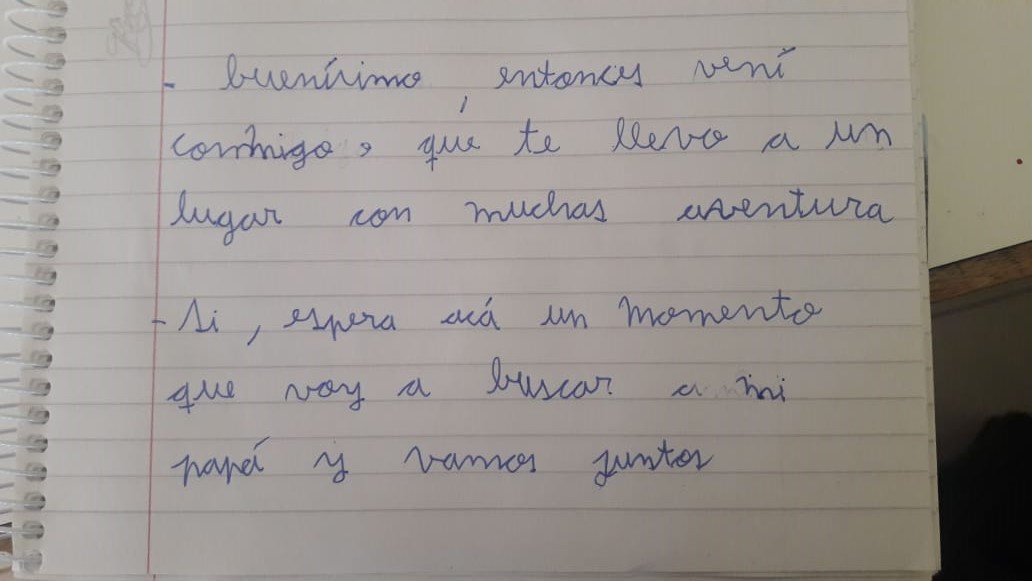 - buenísimo, entonces vení
conmigo, qué te llevo a un
lugar con muchas aventura
- Si, espera acá un momento
que voy a buscar a mi
papá y vamos juntos